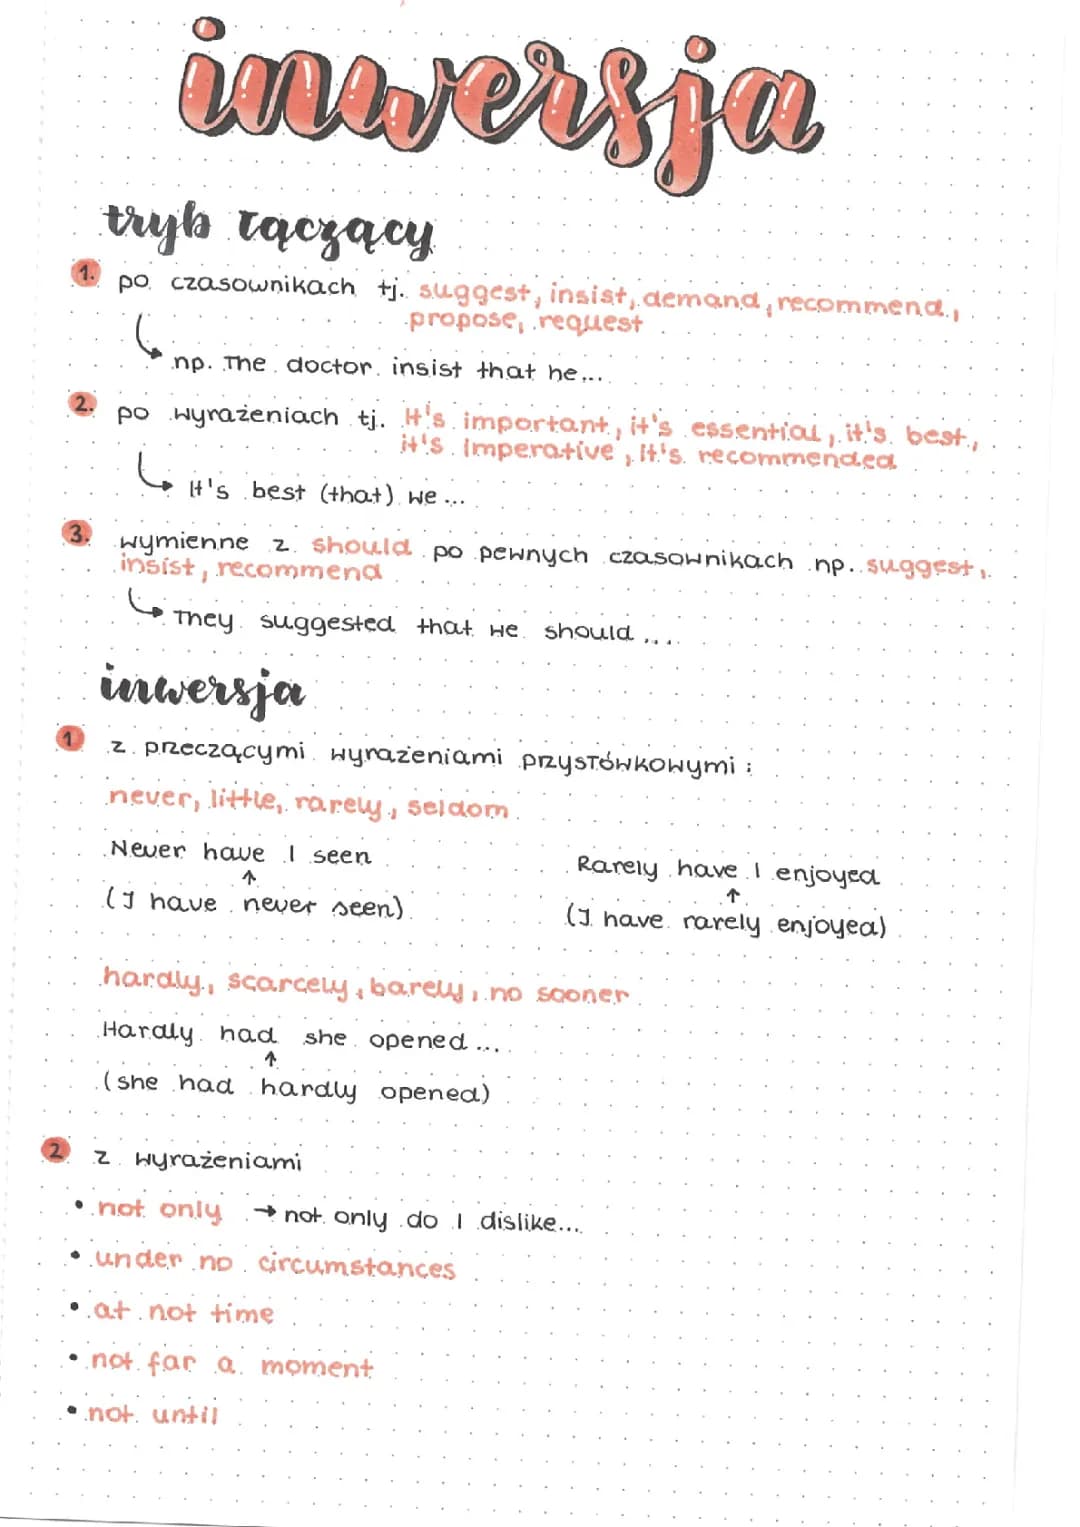 inwersja
tryb łączący
1. po czasownikach tj. suggest, insist, demand, recommend,
propose, request
np. The doctor insist that he...
2. po wyrażeniach tj. It's important, it's essential, it's best,
it's imperative, it's recommended
It's best (that) we ...
3. wymienne z should po pewnych czasownikach np. suggest,
insist, recommend
They suggested that we should ...
inwersja
1 z przeczącymi wyrażeniami przysłówkowymi :
never, little, rarely, seldom
Never have I seen
(I have never seen)
Rarely have I enjoyed
(I have rarely enjoyed)
hardly, scarcely, barely, no sooner
Hardly had she opened ...
(she had hardly opened)
2 z wyrażeniami
• not only → not only do I dislike...
• under no circumstances
• at not time
• not far a moment
• not until